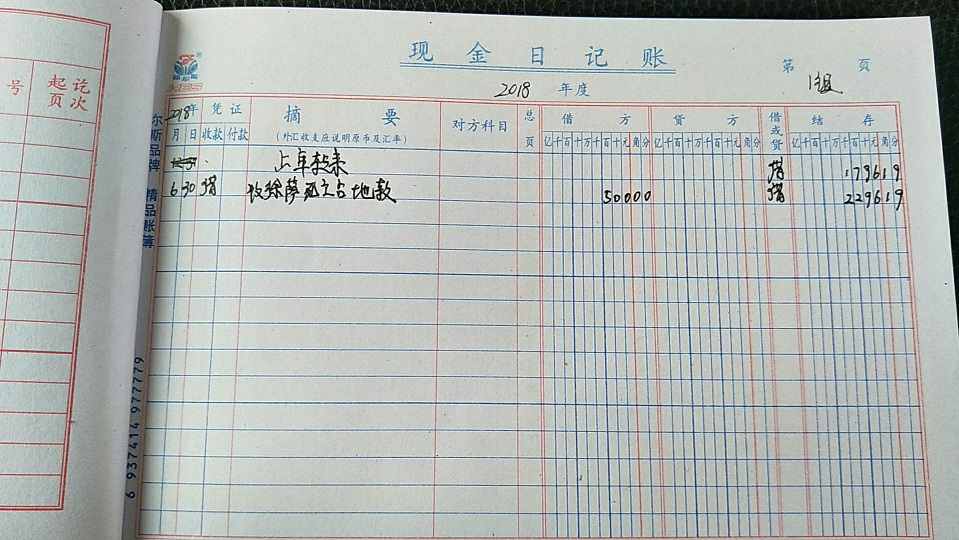 现金日记账
第 页
2018 年度
号
起讫页次
2018年
凭证
摘要
(外汇收支应说明原币及汇率)
对方科目
总页
借方
贷方
借或贷
结存
月 日 收款 付款
亿千百十万千百十元角分
亿千百十万千百十元角分
亿千百十万千百十元角分
上年转来 借 179619
6 30 借 50000 借 229619
尔斯品牌 精品账簿
6 937414 977779